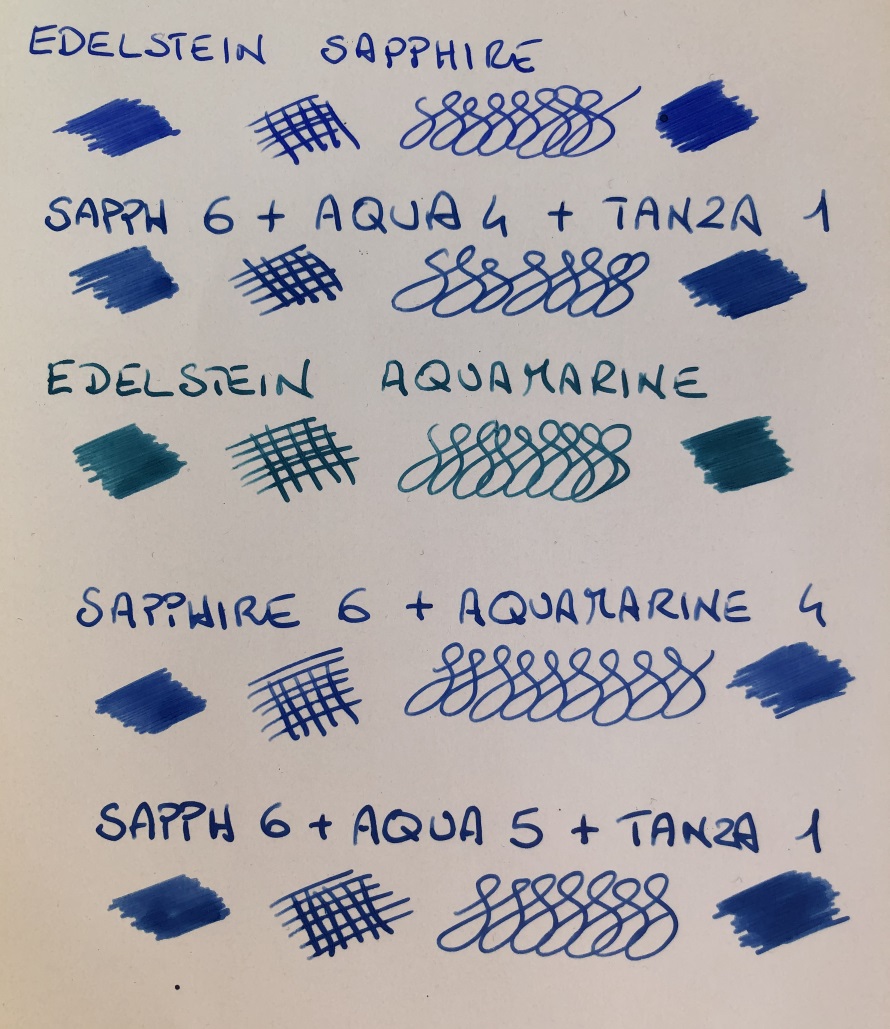 EDELSTEIN SAPPHIRE
SAPPH 6 + AQUA 4 + TANZA 1
EDELSTEIN AQUAMARINE
SAPPHIRE 6 + AQUAMARINE 4
SAPPH 6 + AQUA 5 + TANZA 1